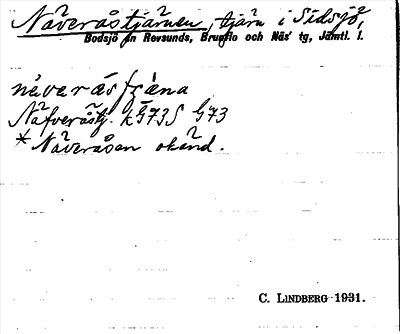 Näveråstjärnen, tjärn i Sidsjö,
Bodsjö sn Revsunds, Brunflo och Näs' tg, Jämtl. l.
nä̀verástjèn̄a
Näfveråstj. k G73S G73
* Näveråsen okänd.
C. LINDBERG 1931.